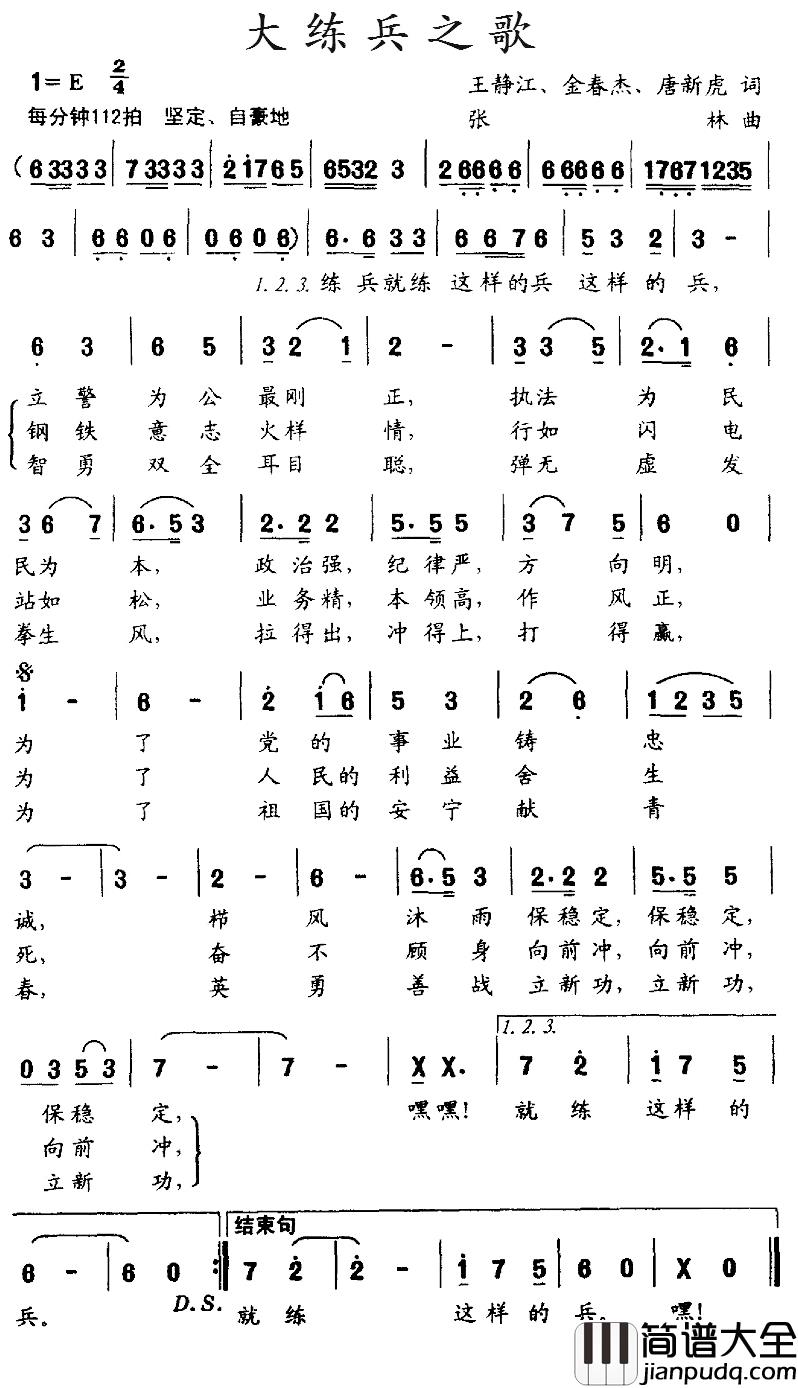 大练兵之歌
1=E 2/4
王静江、金春杰、唐新虎 词
每分钟112拍 坚定、自豪地
张 林 曲
(63333 | 73333 | 2·1765 | 6532 3 | 26666 | 66666 | 1767 1235 |
6 3 | 6 6 0 6 | 0 6 0 6) | 6· 6 3 3 | 6 6 7 6 | 5 3 2 | 3 - |
1.2.3. 练 兵就练 这样的兵 这样 的 兵,
6 3 | 6 5 | 3 2 1 | 2 - | 3 3 5 | 2· 1 6 |
立 警 为 公 最刚 正, 执法 为 民
钢 铁 意 志 火样 情, 行如 闪 电
智 勇 双 全 耳目 聪, 弹无 虚 发
3 6 7 | 6· 5 3 | 2· 2 2 | 5· 5 5 | 3 7 5 | 6 0 |
民为 本, 政治强, 纪律严, 方 向 明,
站如 松, 业务精, 本领高, 作 风 正,
拳生 风, 拉得出, 冲得上, 打 得 赢,
1 - | 6 - | 2 1 6 | 5 3 | 2 6 | 1 2 3 5 |
为 了 党 的 事 业 铸 忠
为 了 人 民的 利 益 舍 生
为 了 祖 国的 安 宁 献 青
3 - | 3 - | 2 - | 6 - | 6· 5 3 | 2· 2 2 | 5· 5 5 |
诚, 栉 风 沐 雨 保稳定, 保稳定,
死, 奋 不 顾 身 向前冲, 向前冲,
春, 英 勇 善 战 立新功, 立新功,
1.2.3.
0 3 5 3 | 7 - | 7 - | X X· | 7 2 | 1 7 5 |
保稳 定, 嘿嘿! 就 练 这样 的
向前 冲,
立新 功,
结束句
6 - | 6 0 :| 7 2 | 2 - | 1 7 5 | 6 0 | X 0 |
兵。 D.S. 就 练 这样 的 兵。 嘿!
简谱大全
jianpudq.com